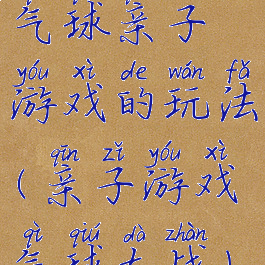 气球亲子
yóu xì de wán fǎ
游戏的玩法
qīn zǐ yóu xì
(亲子游戏
qì qiú dà zhàn
气球大战)